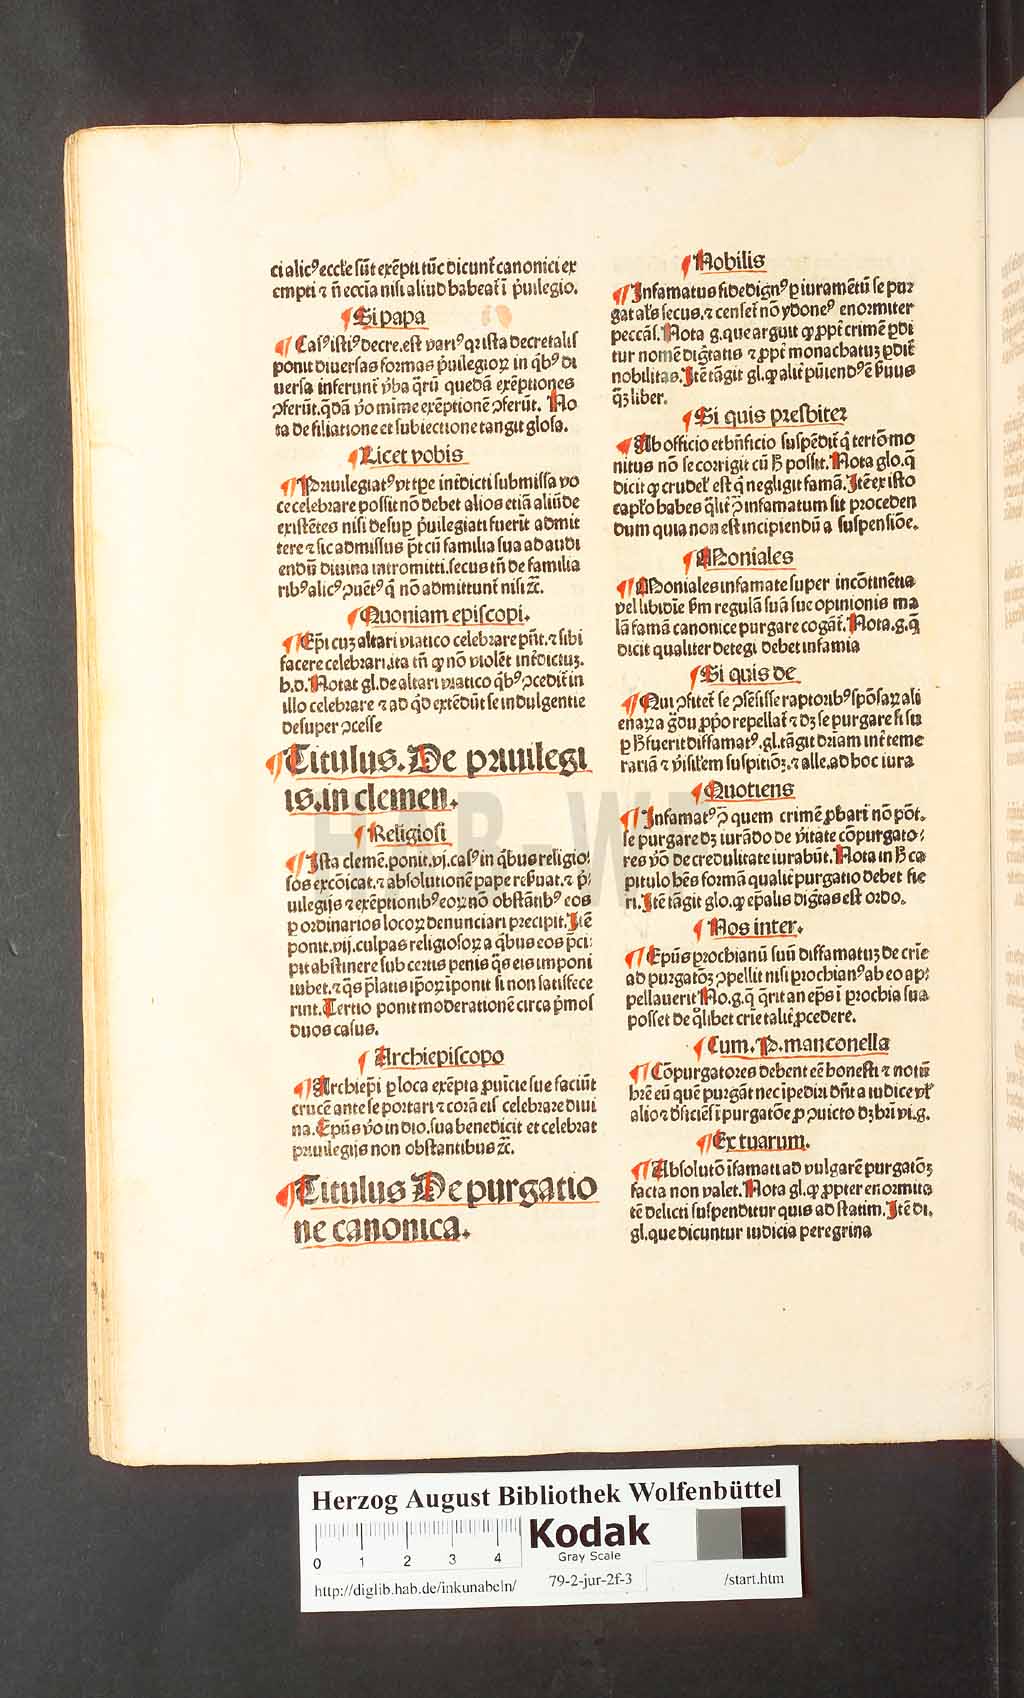 ci alicꝰ eccl'e sūt exēpti tūc dicunt̄ canonici ex
empti ⁊ n̄ eccīa nisi aliud habeat̄ ī p̄uilegio.
¶Si papa
¶ Casꝰ istiꝰ decre. est variꝰ qꝛ ista decretalis
ponit diuersas formas p̄uilegioꝝ in qͥbꝰ di
uersa inferunt̄ v̓ba qͣrū quedā exēptiones
ꝯferūt. qͦdā v̓o mime exēptionē ꝯferūt. No
ta de filiatione et subiectione tangit glosa.
¶Licet vobis
¶Priuilegiatꝰ vt tp̄e int̓dicti submissa vo
ce celebrare possit nō debet alios etiā aliūde
existētes nisi desuꝑ p̄uilegiati fuerit admit
tere ⁊ sic admissus p̄t cū familia sua ad audi
endū diuina intromitti. secus tn̄ de familia
ribꝰ alicꝰ ꝯuētꝰ q̄ nō admittunt̄ nisi ⁊c̄.
¶Quoniam episcopi.
¶Ep̄i cuꝫ altari viatico celebrare pn̄t. ⁊ sibi
facere celebrari. ita tn̄ ꝙ nō violēt int̓dictuꝫ.
h. d. Notat gl. de altari viatico qͥbꝰ ꝯcedit̄ in
illo celebrare ⁊ ad qͥd extēdūt se indulgentie
desuper ꝯcesse
¶Titulus. De priuilegi
is. in clemen.
¶Religiosi
¶Ista clemē. ponit. vj. casꝰ in qͥbus religio⸗
sos excōicat. ⁊ absolutionē pape res̓uat. ⁊ p̄i⸗
uilegijs ⁊ exēptionibꝰ eoꝝ nō obstātibꝰ eos
ꝑ ordinarios locoꝝ denunciari precipit. Itē
ponit. vij. culpas religiosoꝝ a qͥbus eos p̄ci⸗
pit abstinere sub certis penis qͣs eis imponi
iubet. ⁊ qͣs p̄latis ip̄oꝝ īponit si non satisfece
rint. Tertio ponit moderationē circa p̄mos
duos casus.
¶ Archiepiscopo
¶Archiep̄i ꝑ loca exēpta ꝓuīcie sue faciūt
crucē ante se portari ⁊ corā eis celebrare diui
na. Ep̄us v̓o in dio. sua benedicit et celebrat
priuilegijs non obstantibus ⁊c̄.
¶Titulus De purgatio
ne canonica.
¶Nobilis
¶Infamatus fidedignꝰ ꝑ iuramētū se pur
gat al's secus. ⁊ censet̄ nō ydoneꝰ enormiter
peccās. Nota g. que arguit ꝙ ꝓpt̓ crimē ꝑdi
tur nomē dig̓tatis ⁊ ꝓpt̓ monachatuꝫ ꝑdit̄
nobilitas. Itē tāgit gl. ꝙ alit̓ pūiendꝰ ē s̓uus
qͣꝫ liber.
¶Si quis presbiter
¶Ab officio et bn̄ficio suspēdit̄ q̄ tertō mo
nitus nō se corrigit cū h̄ possit. Nota glo. q̄
dicit ꝙ crudel' est q̄ negligit famā. Itē ex isto
capl'o habes qͣlit̓ ꝯ infamatum sit proceden
dum quia non est incipiendū a suspensiōe.
¶Moniales
¶Moniales infamate super incōtinētia
vel libidīe s̓m regulā suā siue opinionis ma
lā famā canonice purgare cogāt̄. Nota. g. q̄
dicit qualiter detegi debet infamia
¶Si quis de
¶Qui ꝯfitet̄ se ꝯsēsisse raptoribꝰ spōsaꝝ ali
enaꝝ a g̓du ꝓpō repellat̄ ⁊ dꝫ se purgare si su
ꝑ h̄ fuerit diffamatꝰ. gl. tāgit dr̄iam int̓ teme
rariā ⁊ v̓isil'em suspitiōꝫ. ⁊ alle. ad hoc iura
¶Quotiens
¶Infamatꝰ ꝯ quem crimē ꝓbari nō pōt.
se purgare dꝫ iurādo de v̓itate cōpurgato⸗
res v̓o de credulitate iurabūt. Nota in h̄ ca
pitulo bn̄s formā qualit̓ purgatio debet fie
ri. Itē tāgit glo. ꝙ ep̄alis dig̓tas est ordo.
¶ Nos inter.
¶Ep̄us ꝑrochianū suū diffamatuꝫ de crīe
ad purgatōꝫ ꝯpellit nisi ꝑrochianꝰ ab eo ap⸗
pellauerit No. g. q̄ q̄rit an ep̄s ī ꝑrochia sua
posset de qͦlibet crīe talit̓ ꝓcedere.
¶Cum. P. manconella
¶Cōpurgatores debent eē honesti ⁊ notū
hr̄e eū quē purgāt nec īpediri dn̄t a iudice vl'
alio ⁊ d̓ficiēs ī purgatōe ꝓ ꝯuicto dꝫ hr̄i vi. g.
¶Ex tuarum.
¶Absolutō īfamati ad vulgarē purgatōꝫ
facta non valet. Nota gl. ꝙ ꝓpter enormita
tē delicti suspenditur quis ad statim. Itē di.
gl. que dicuntur iudicia peregrina
Herzog August Bibliothek Wolfenbüttel
0 1 2 3 4
Kodak
Gray Scale
http://diglib.hab.de/inkunabeln/ 79-2-jur-2f-3 /start.htm